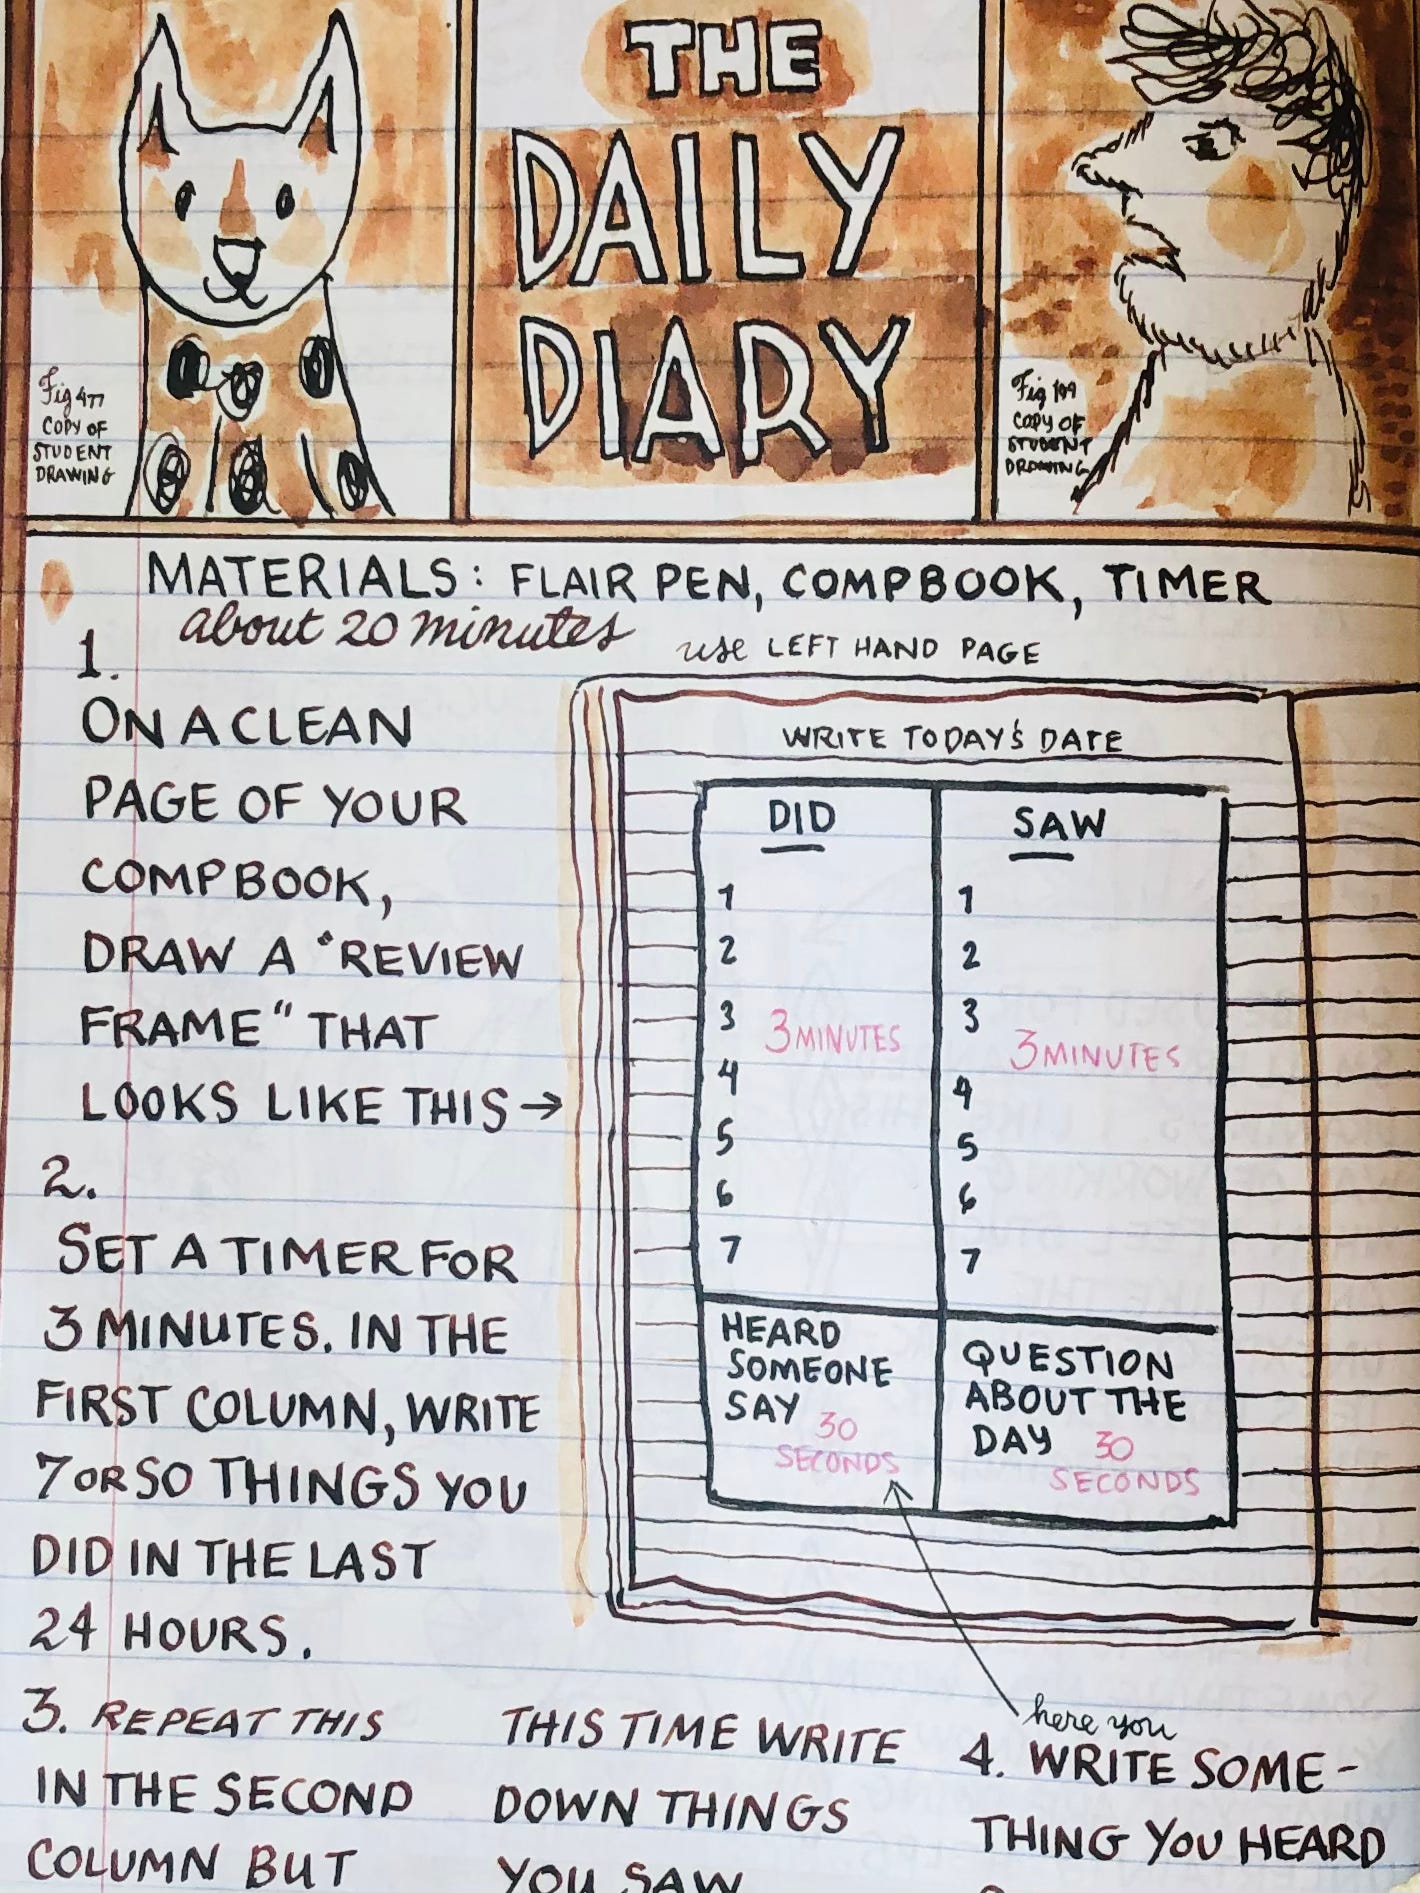 THE
DAILY
DIARY
Fig 477
COPY OF
STUDENT
DRAWING
Fig 199
COPY OF
STUDENT
DRAWING
MATERIALS: FLAIR PEN, COMPBOOK, TIMER
about 20 minutes
1.
ON A CLEAN
PAGE OF YOUR
COMPBOOK,
DRAW A "REVIEW
FRAME" THAT
LOOKS LIKE THIS →
use LEFT HAND PAGE
WRITE TODAY'S DATE
DID
1
2
3
3 MINUTES
4
5
6
7
SAW
1
2
3
3 MINUTES
4
5
6
7
HEARD
SOMEONE
SAY
30
SECONDS
QUESTION
ABOUT THE
DAY
30
SECONDS
2.
SET A TIMER FOR
3 MINUTES. IN THE
FIRST COLUMN, WRITE
7 OR SO THINGS YOU
DID IN THE LAST
24 HOURS.
3. REPEAT THIS
IN THE SECOND
COLUMN BUT
THIS TIME WRITE
DOWN THINGS
YOU SAW
here you
4. WRITE SOME-
THING YOU HEARD